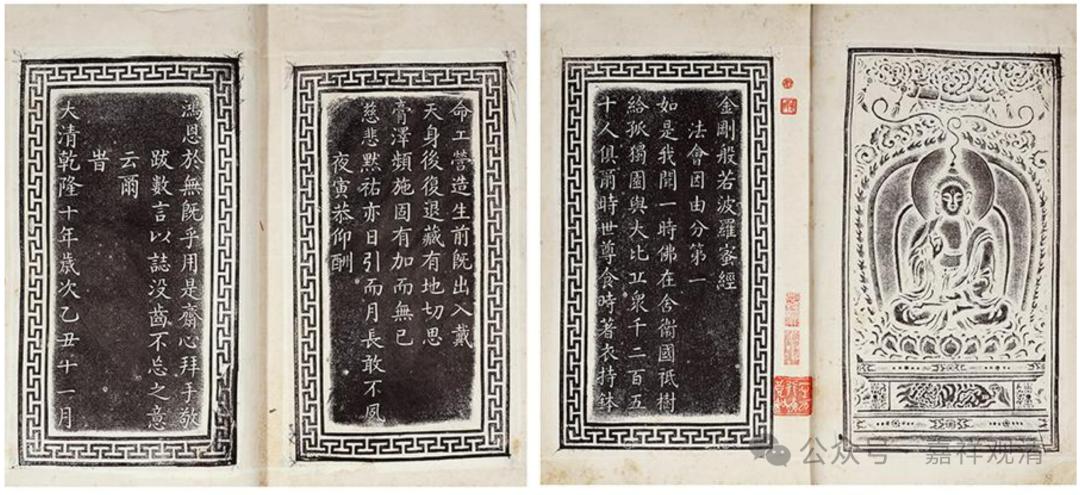 金剛般若波羅蜜經
法會因由分第一
如是我聞一時佛在舍衛國祇樹
給孤獨園與大比丘衆千二百五
十人俱爾時世尊食時著衣持鉢
命工營造生前既出入戴
天身後復退藏有地切思
膏澤頻施固有加而無已
慈悲默祐亦日引而月長敢不夙
夜寅恭仰酬
鴻恩於無既乎用是齋心拜手敬
跋數言以誌没齒不忘之意
云爾
旹
大清乾隆十年歲次乙丑十一月
公众号 · 嘉祥观清